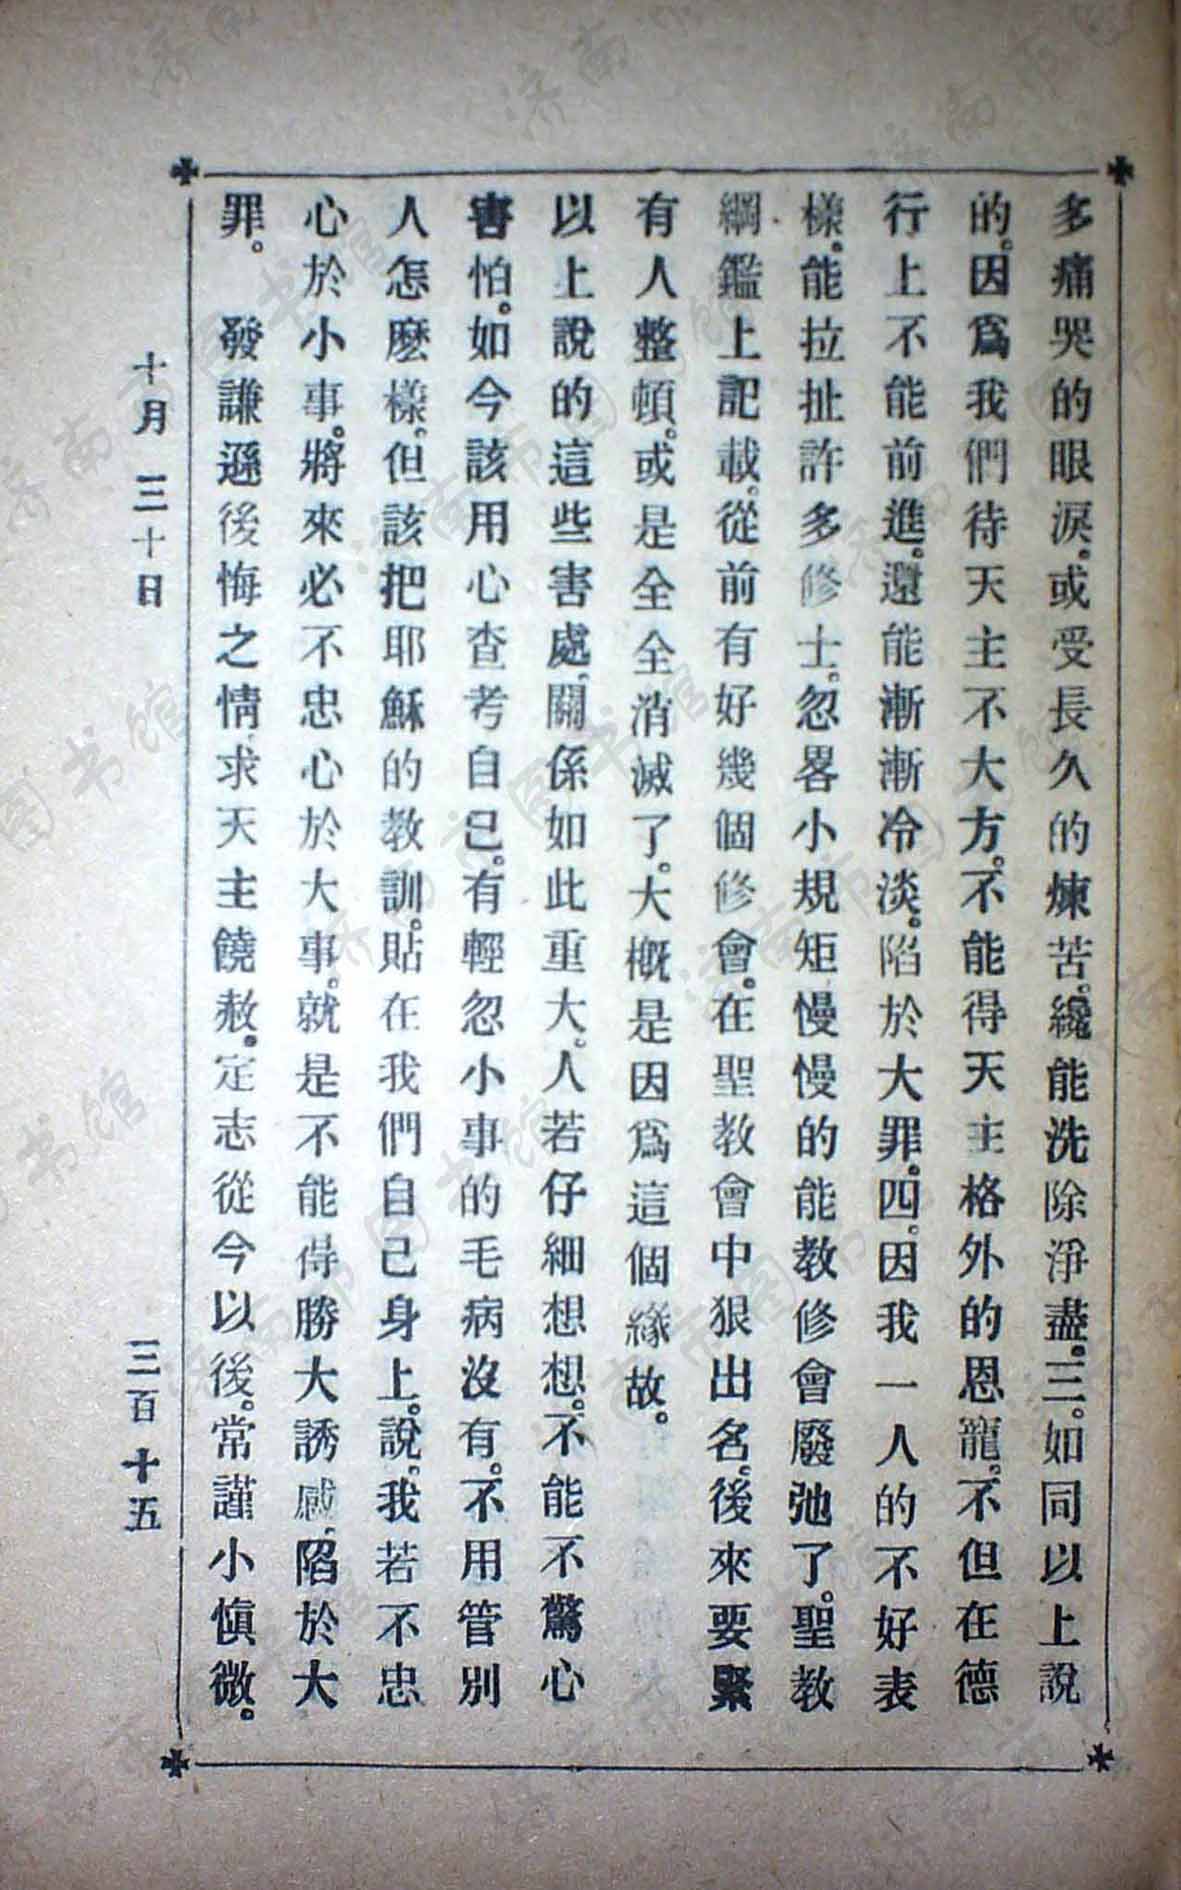 多痛哭的眼淚。或受長久的煉苦。纔能洗除淨盡。三。如同以上說
的。因爲我們待天主不大方。不能得天主格外的恩寵。不但在德
行上不能前進。還能漸漸冷淡。陷於大罪。四。因我一人的不好表
樣。能拉扯許多修士。忽畧小規矩慢慢的能教修會廢弛了。聖教
綱鑑上記載。從前有好幾個修會。在聖教會中狠出名。後來要緊
有人整頓。或是全全消滅了。大概是因爲這個緣故。
以上說的這些害處。關係如此重大。人若仔細想想。不能不驚心
害怕。如今該用心查考自己。有輕忽小事的毛病沒有。不用管別
人怎麽樣。但該把耶穌的教訓。貼在我們自己身上。說。我若不忠
心於小事。將來必不忠心於大事。就是不能得勝大誘感。陷於大
罪。　發謙遜後悔之情。求天主饒赦。定志從今以後。常謹小愼微。
十月三十日
三百十五
济南市图书馆